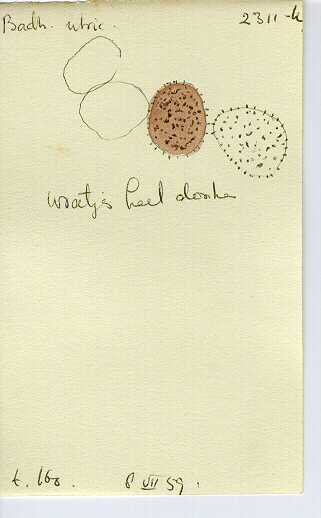 Badh. utric.
2311-h
wratjes heel donker
t. 160.
8 VII 59.